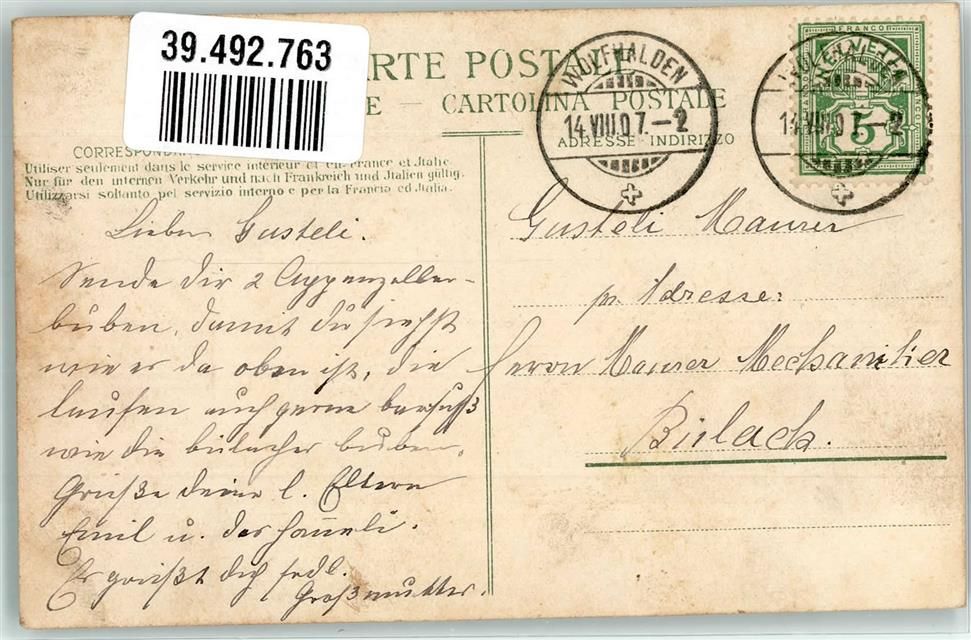 39.492.763
ARTE POSTAL
E — CARTOLINA POSTALE
CORRESPONDAN
ADRESSE - INDIRIZZO
Utiliser seulement dans le service intérieur et en France et Italie.
Nur für den internen Verkehr und nach Frankreich und Italien gültig.
Utilizzarsi soltanto pel servizio interno e per la Francia ed Italia.
WOLFHALDEN
14.VIII.07.-2
FRANCO
5
14.VIII.07.-2
Lieber Gusteli.
Sende dir 2 Appenzeller-
buben, damit du siehst
wie es da oben ist, die
laufen auch gerne barfuß
wie die bülacher buben.
Grüße deine l. Eltern
Emil u. das Hanneli.
Es grüßt dich herzl.
Großmutter.
Gusteli Maurer
pr. Adresse:
Herrn Maurer Mechaniker
Bülach.